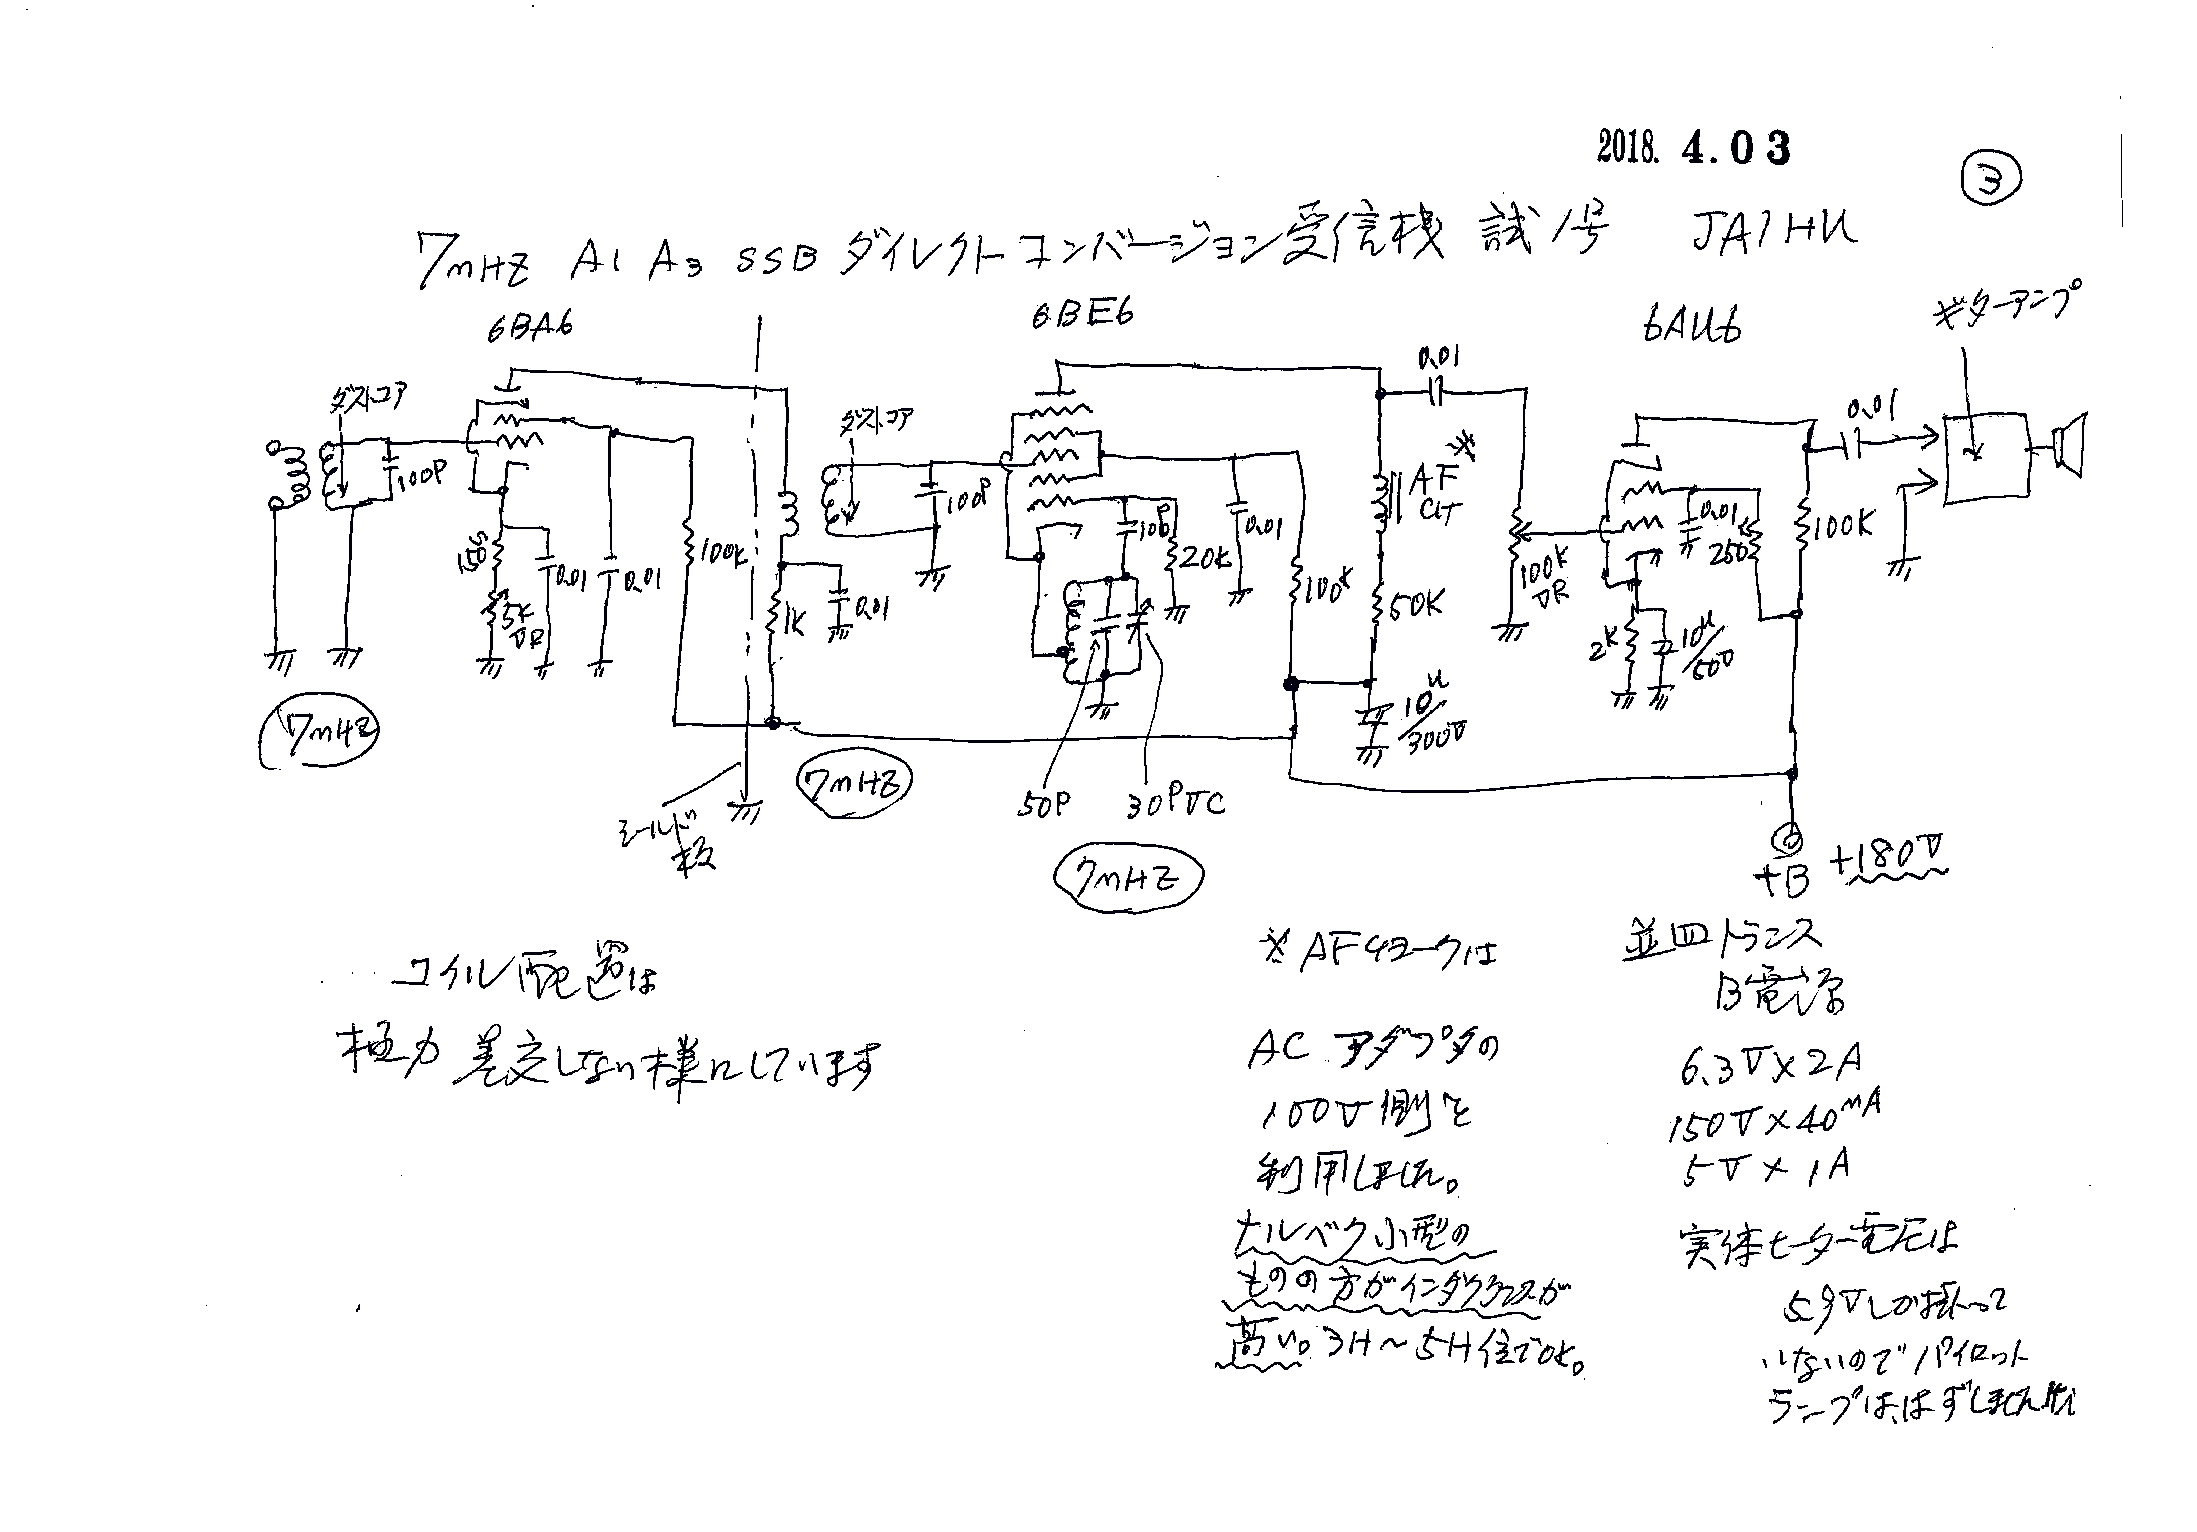 2018. 4.03
③
7mHZ A1 A3 SSB ダイレクトコンバージョン受信機 試1号 JA1HU
6BA6
6BE6
6AU6
ギターアンプ
ダストコア
100P
150
5K
VR
0.01
0.01
100K
1K
0.01
ダストコア
100P
100P
20K
0.01
100K
0.01
AF
CH
※
50K
10μ/300V
100K
VR
0.01
250
100K
0.01
2K
10μ/50V
7mHZ
シールド
板
7mHZ
50P
30PVC
7mHZ
+B
+180V
コイル配置は
極力 差交しない様にしています
※AFチョークは
ACアダプタの
100V側を
利用しました。
ナルベク小型の
ものの方がインダクタンスが
高い。3H〜5H位でOK。
並四トランス
B電源
6.3V×2A
150V×40mA
5V×1A
実体ヒーター電圧は
5.9Vしか掛って
いないのでパイロット
ランプは、はずしました